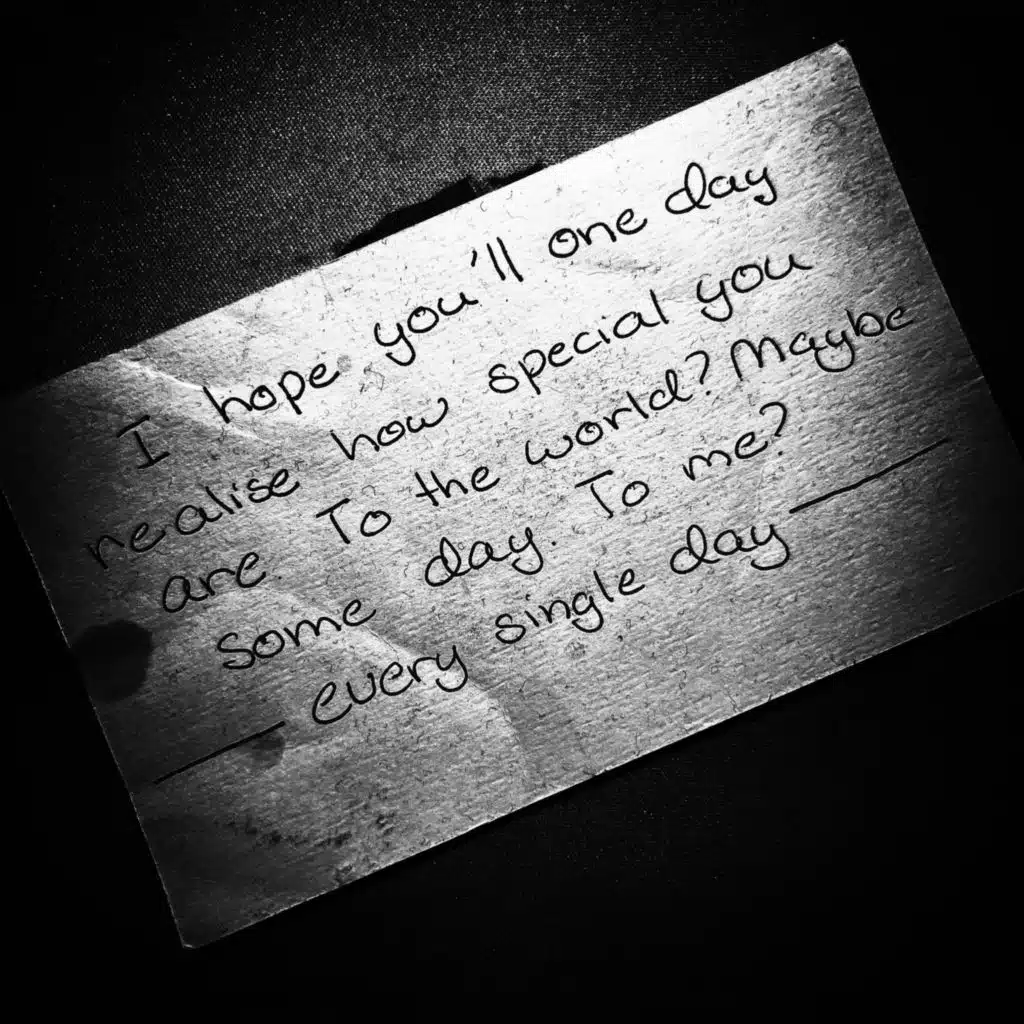 I hope you'll one day
realise how special you
are. To the world? Maybe
some day. To me?
every single day